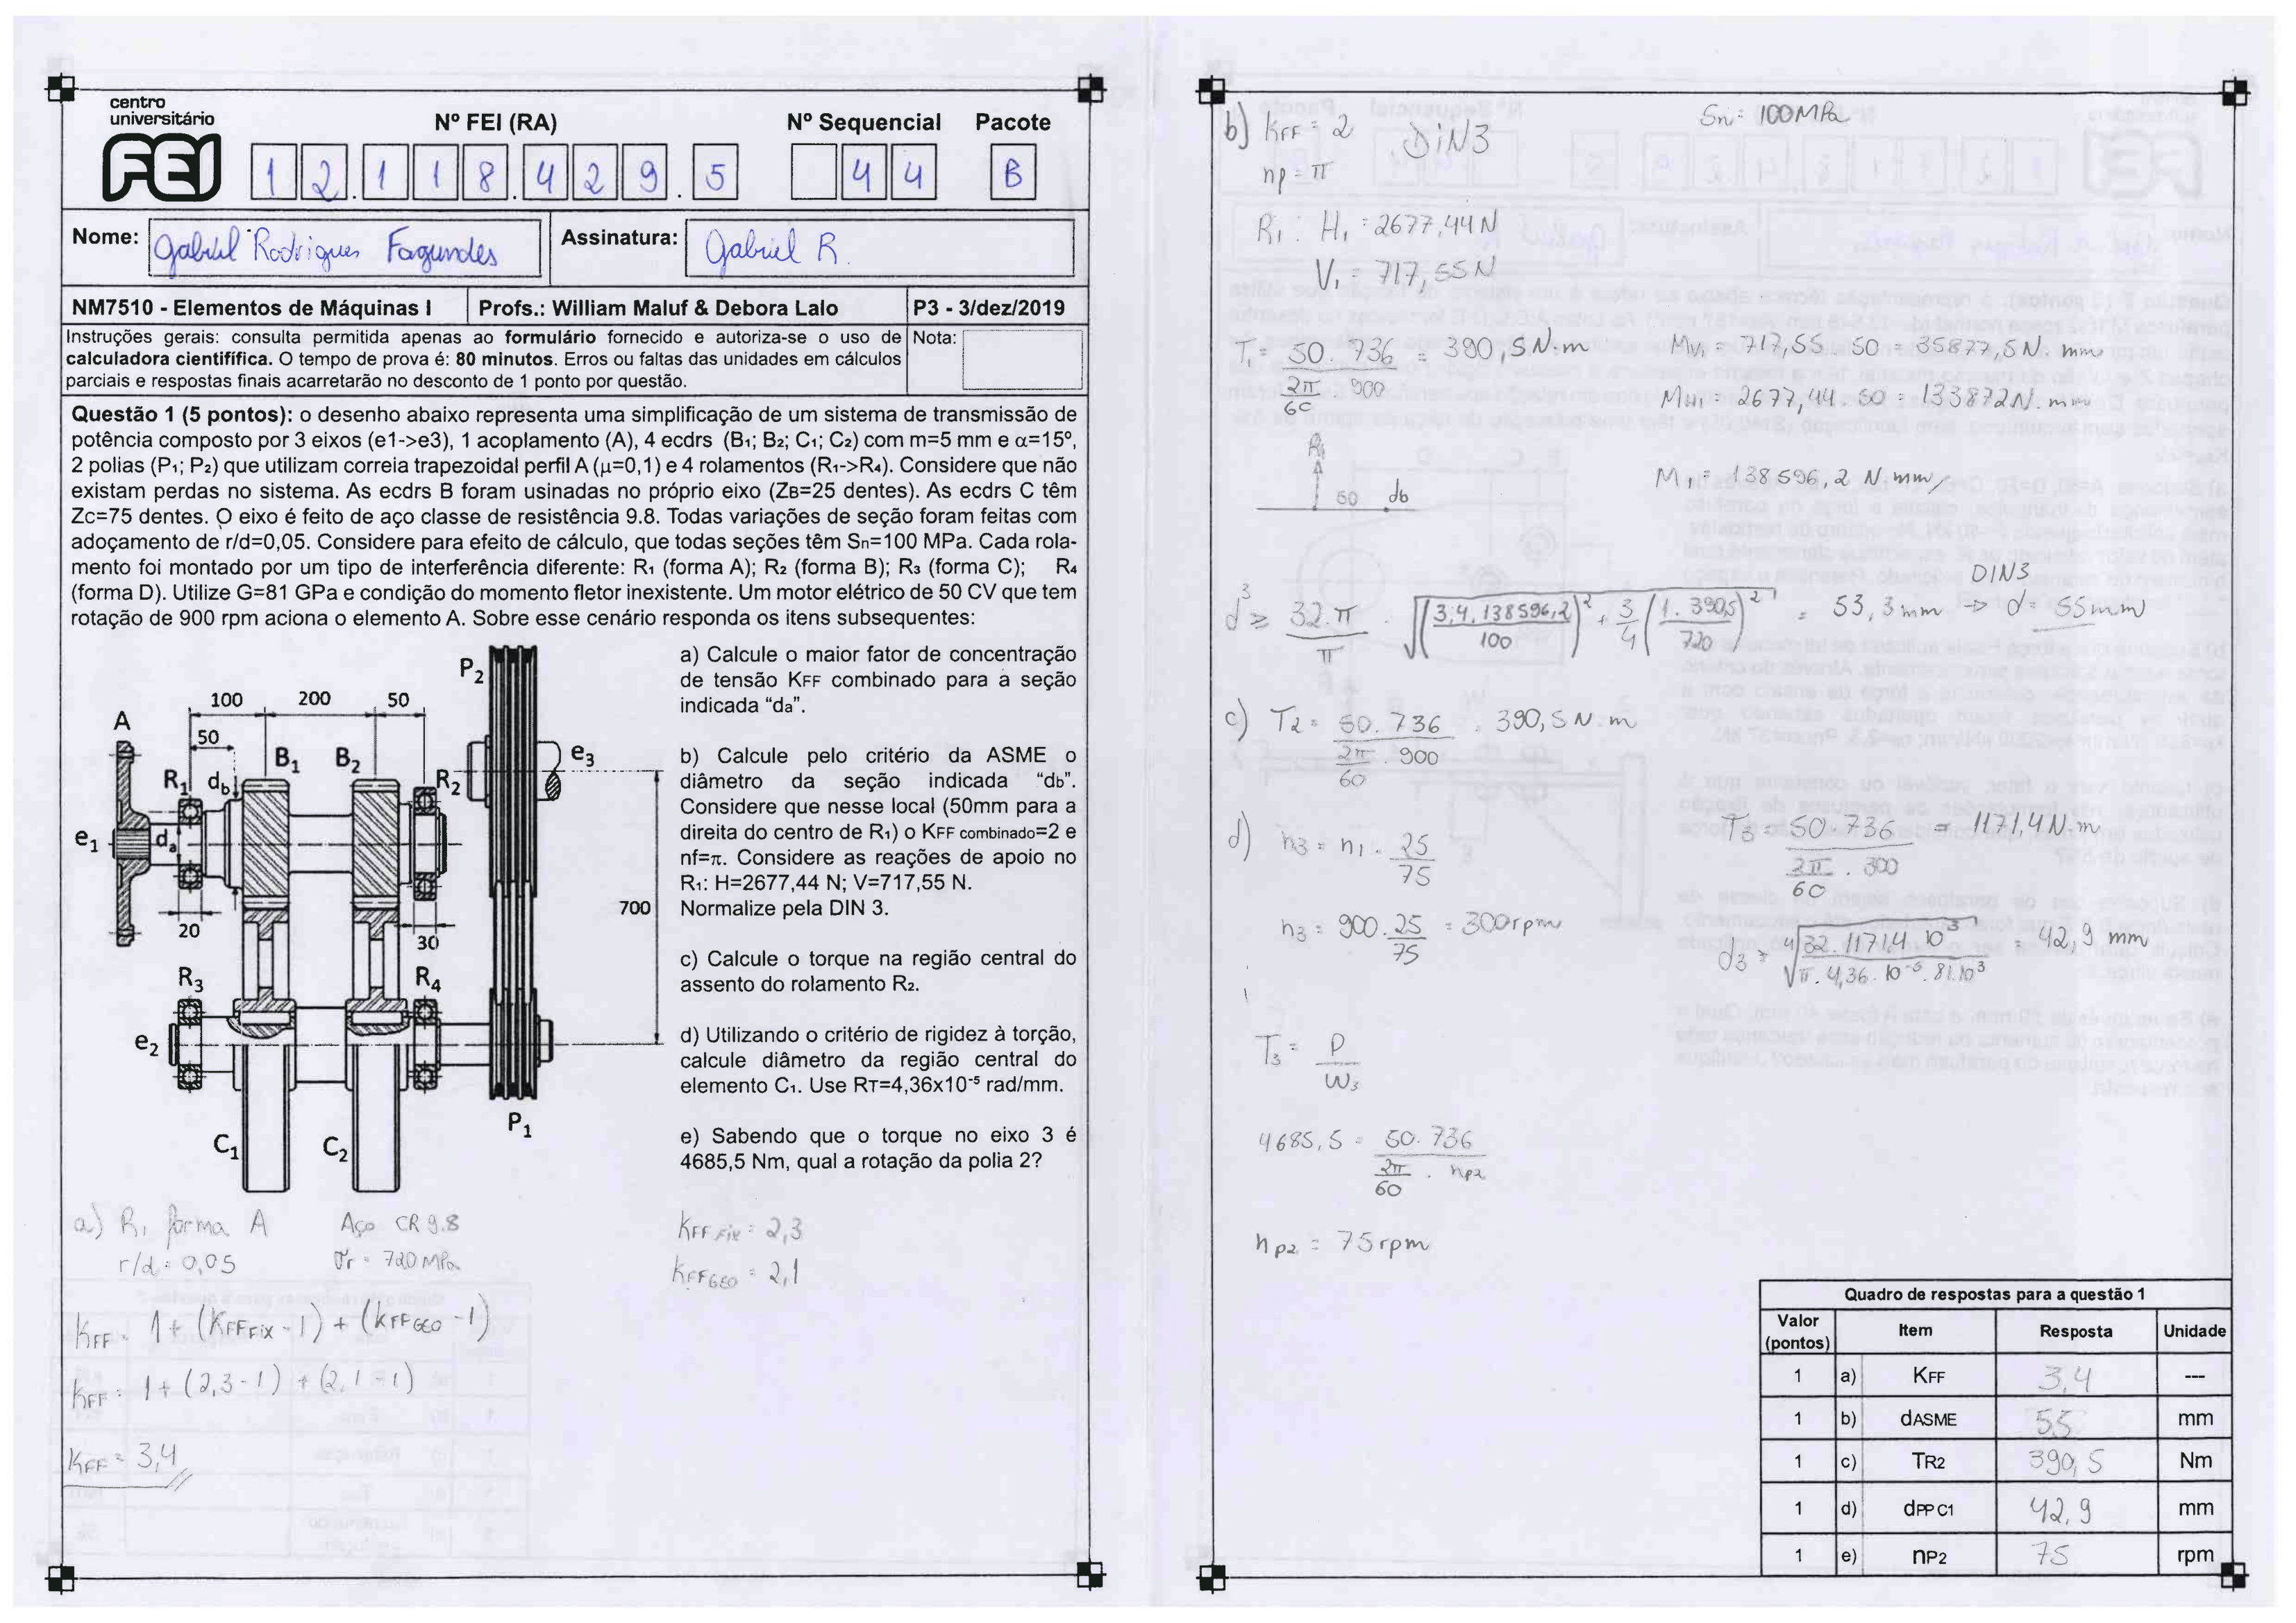 centro
universitário
FEI
Nº FEI (RA)
Nº Sequencial
Pacote
1 2 . 1 1 8 . 4 2 9 . 5
4 4
B
Nome: Gabriel Rodrigues Fagundes
Assinatura: Gabriel R.
NM7510 - Elementos de Máquinas I
Profs.: William Maluf & Debora Lalo
P3 - 3/dez/2019
Instruções gerais: consulta permitida apenas ao formulário fornecido e autoriza-se o uso de
calculadora cientifífica. O tempo de prova é: 80 minutos. Erros ou faltas das unidades em cálculos
parciais e respostas finais acarretarão no desconto de 1 ponto por questão.
Nota:
Questão 1 (5 pontos): o desenho abaixo representa uma simplificação de um sistema de transmissão de
potência composto por 3 eixos (e1->e3), 1 acoplamento (A), 4 ecdrs (B1; B2; C1; C2) com m=5 mm e α=15º,
2 polias (P1; P2) que utilizam correia trapezoidal perfil A (μ=0,1) e 4 rolamentos (R1->R4). Considere que não
existam perdas no sistema. As ecdrs B foram usinadas no próprio eixo (ZB=25 dentes). As ecdrs C têm
Zc=75 dentes. O eixo é feito de aço classe de resistência 9.8. Todas variações de seção foram feitas com
adoçamento de r/d=0,05. Considere para efeito de cálculo, que todas seções têm Sn=100 MPa. Cada rola-
mento foi montado por um tipo de interferência diferente: R1 (forma A); R2 (forma B); R3 (forma C); R4
(forma D). Utilize G=81 GPa e condição do momento fletor inexistente. Um motor elétrico de 50 CV que tem
rotação de 900 rpm aciona o elemento A. Sobre esse cenário responda os itens subsequentes:
P2
100 200 50
A
50
B1 B2
e3
R1 db
R2
e1
da
700
20
30
R3
R4
e2
P1
C1 C2
a) Calcule o maior fator de concentração
de tensão KFF combinado para a seção
indicada “da”.
b) Calcule pelo critério da ASME o
diâmetro da seção indicada “db”.
Considere que nesse local (50mm para a
direita do centro de R1) o KFF combinado=2 e
nf=π. Considere as reações de apoio no
R1: H=2677,44 N; V=717,55 N.
Normalize pela DIN 3.
c) Calcule o torque na região central do
assento do rolamento R2.
d) Utilizando o critério de rigidez à torção,
calcule diâmetro da região central do
elemento C1. Use RT=4,36x10⁻⁵ rad/mm.
e) Sabendo que o torque no eixo 3 é
4685,5 Nm, qual a rotação da polia 2?
a) R1 forma A
Aço CR 9.8
r/d = 0,05
σr = 720 MPa
KFF FIX = 2,3
KFF GEO = 2,1
KFF = 1 + (KFF FIX - 1) + (KFF GEO - 1)
KFF = 1 + (2,3 - 1) + (2,1 - 1)
KFF = 3,4
b) KFF = 2 DIN3
Sn = 100 MPa
np = π
R1: H1 = 2677,44 N
V1 = 717,55 N
T1 = 50 . 736 / (2π/60 . 900) = 390,5 N.m
MV1 = 717,55 . 50 = 35877,5 N. mm
MH1 = 2677,44 . 50 = 133872 N. mm
R1
50 db
M1 = 138596,2 N.mm
d³ ≥ 32.π/π . √((3,4.138596,2/100)² + 3/4 (1.390,5/720)²) = 53,3 mm -> d = 55 mm
DIN3
c) T2 = 50. 736 / (2π/60 . 900) = 390,5 N.m
d) n3 = n1 . 25/75
n3 = 900 . 25/75 = 300 rpm
T3 = 50 . 736 / (2π/60 . 300) = 1171,4 N.m
d3 = ⁴√(32. 1171,4. 10³ / π. 4,36. 10⁻⁵. 81.10³) = 42,9 mm
T3 = P/ω3
4685,5 = 50. 736 / (2π/60 . nP2)
nP2 = 75 rpm
Quadro de respostas para a questão 1
Valor (pontos) Item Resposta Unidade
1 a) KFF 3,4 ---
1 b) dASME 55 mm
1 c) TR2 390,5 Nm
1 d) dPP C1 42,9 mm
1 e) nP2 75 rpm